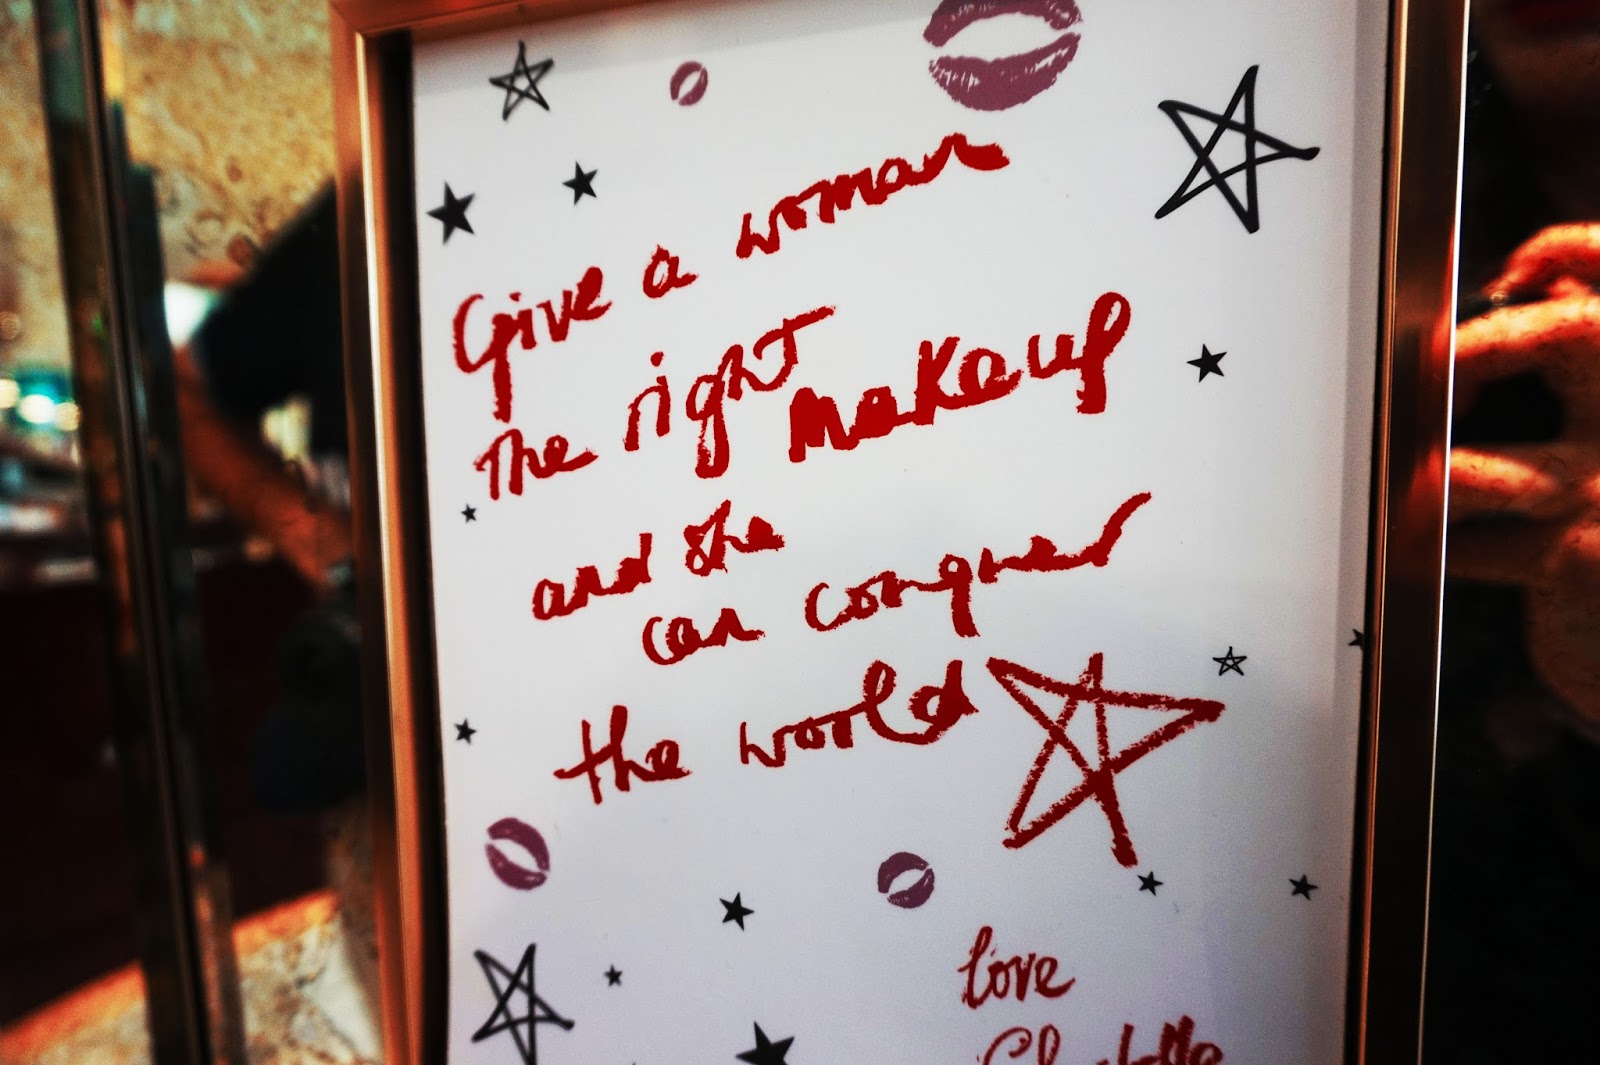 Give a woman
the right makeup
and she
can conquer
the world
love